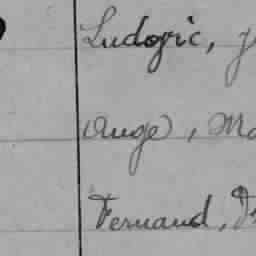 Ludovic,
Ange, Ma
Fernand,